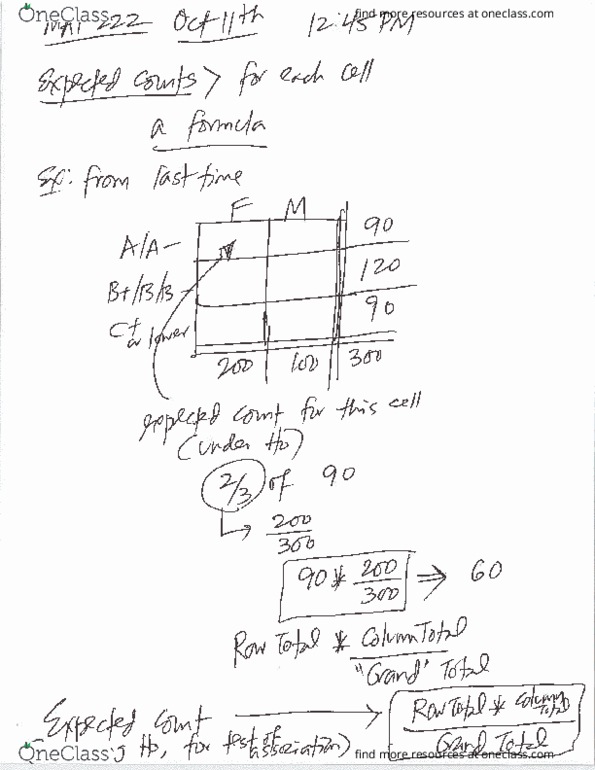 OneClass
find more resources at oneclass.com
222 Oct 11th 12:45 PM
Expected Counts > for each cell
a formula
Ex: from last time
F M
A/A- 90
B+/B/B- 120
C+ or lower 90
200 100 300
expected count for this cell
(under Ho)
2/3 of 90
200/300
90 * 200/300 ⇒ 60
Row Total * Column Total
"Grand" Total
Expected Count → Row Total * Column Total
Ho, for test of association) Grand Total
OneClass
find more resources at oneclass.com